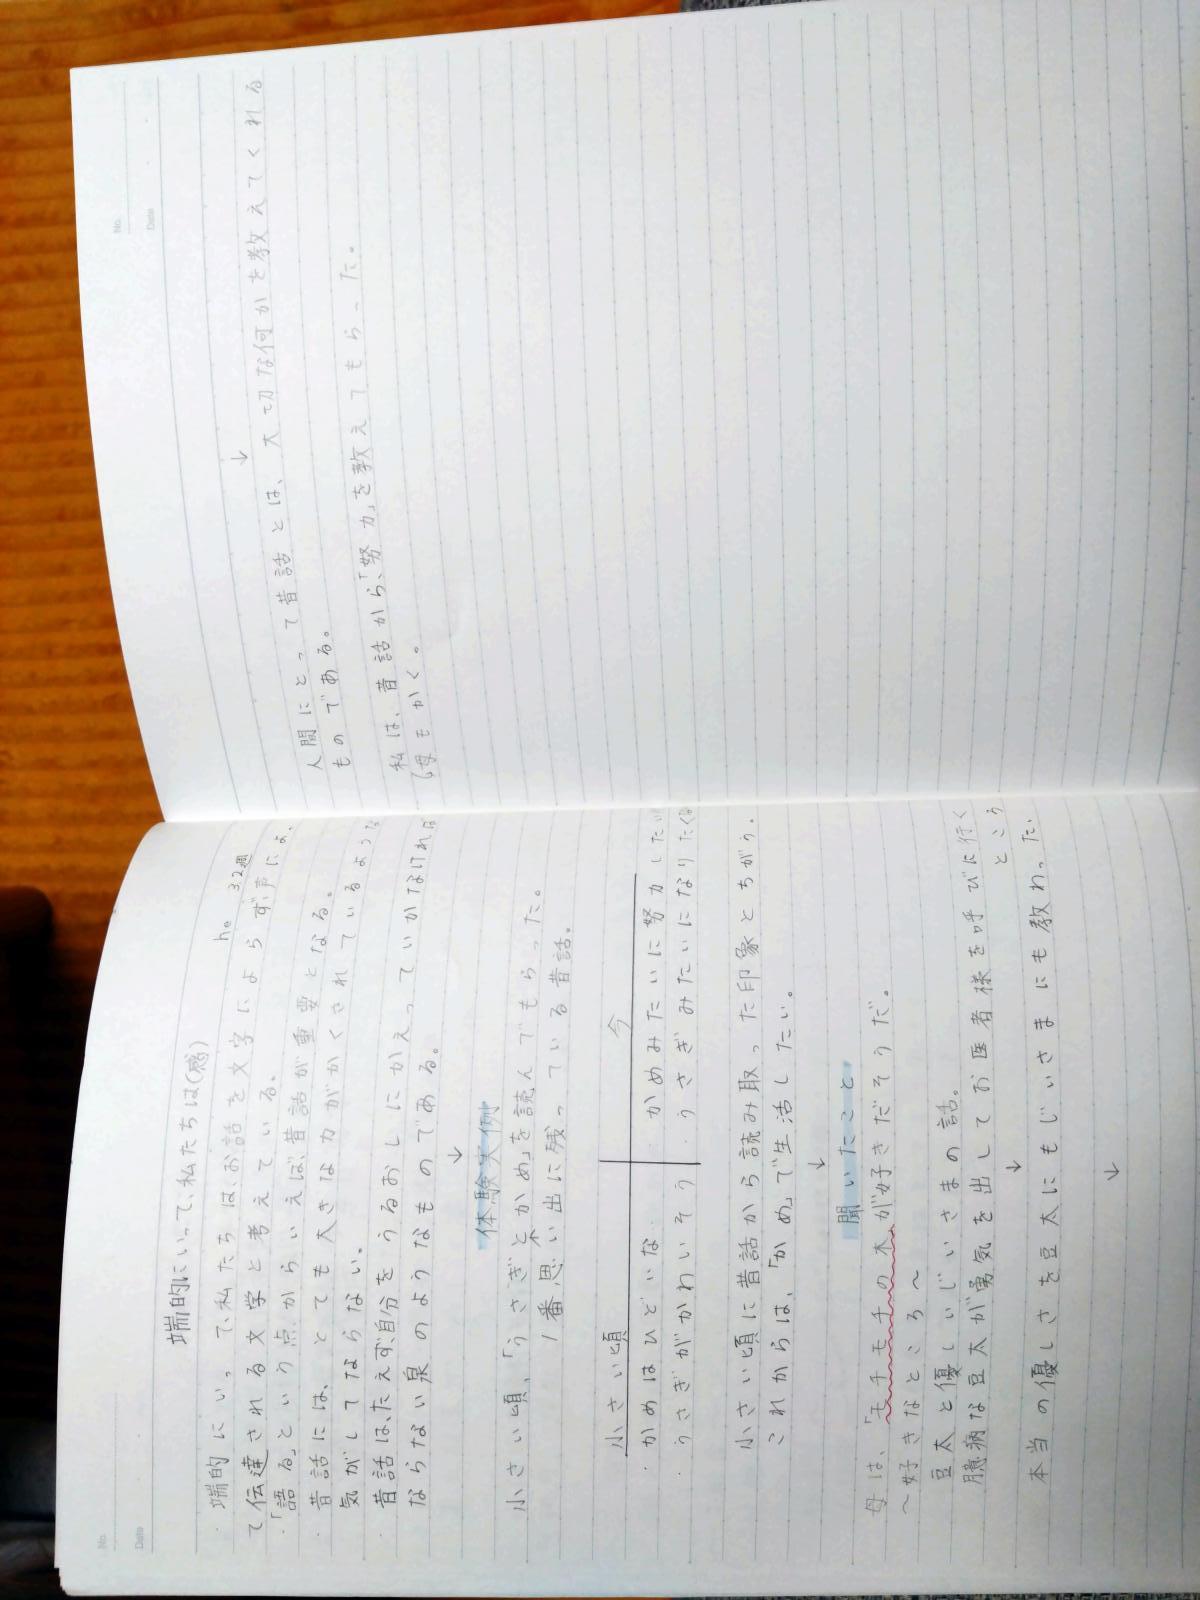 No.
Date
端的にいって、私たちは(感)
he 3.2週
・端的にいって、私たちは、お話を文字によらず、声によ
て伝達される文学と考えている。
・「語る」という点からいえば、昔話が重要となる。
・昔話には、とても大きな力がかくされているような
気がしてならない。
・昔話は、たえず、自分をうるおしにかえっていかなければ
ならない泉のようなものである。
↓
体験実例
小さい頃、「うさぎとかめ」を読んでもらった。
1番思い出に残っている昔話。
小さい頃 今
・かめはひどいな ・かめみたいに努力したい
・うさぎがかわいそう ・うさぎみたいになりたくな
小さい頃に昔話から読み取った印象とちがう。
これからは、「かめ」で生活したい。
↓
聞いたこと
母は、「モチモチの木」が好きだそうだ。
〜好きなところ〜
豆太と優しいじいさまの話。
臆病な豆太が勇気を出してお医者様を呼びに行く
ところ
↓
本当の優しさを豆太にもじいさまにも教わった。
↓
No.
Date
↓
人間にとって昔話とは、大切な何かを教えてくれる
ものである。
私は、昔話から、「努力」を教えてもらった。
(母もかく。